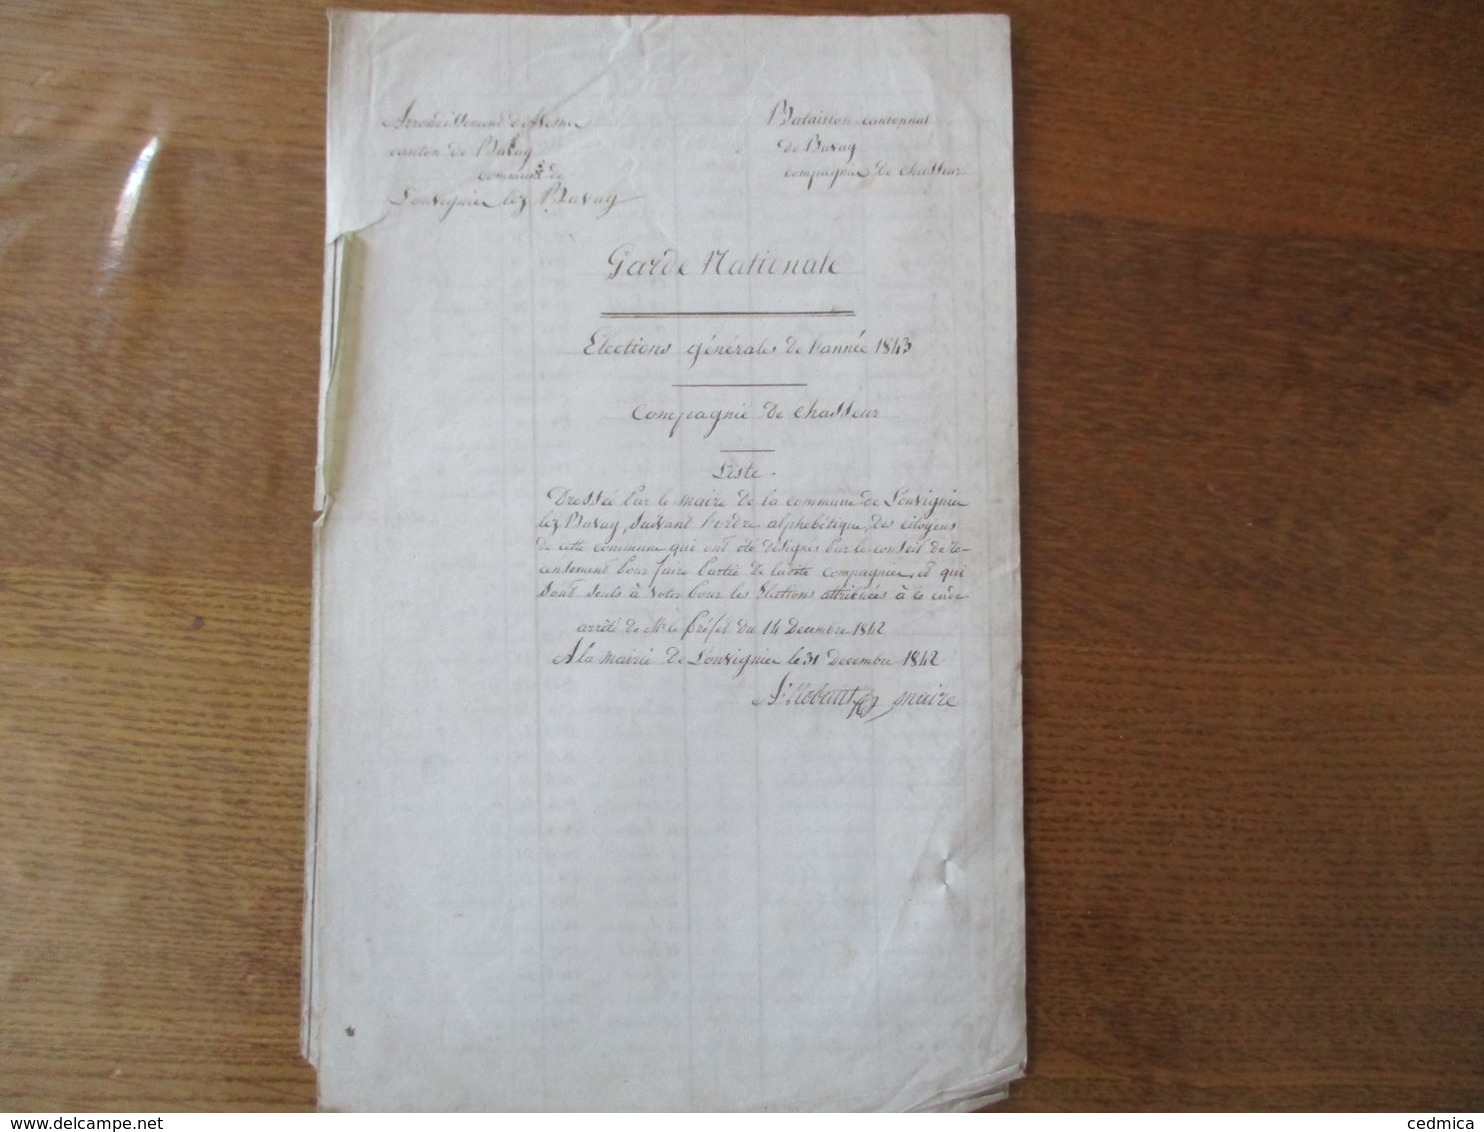 Arrondissement d'Avesne
canton de Bavay
commune de
Louvignier lez Bavay
Bataillon cantonnal
de Bavay
compagnie de chasseur
Garde Nationale
Elections générales de l'année 1843
Compagnie de chasseur
Liste
Dressée par le maire de la commune de Louvignier
lez Bavay, suivant l'ordre alphebétique, des citoyens
de cette commune qui ont été designés par le conseil de re-
censement pour faire partie de ladite compagnie, et qui
sont seuls à voter pour les élections attribuées à le cadre
arrêté de Mr le préfet du 14 Decembre 1842
A la mairie de Louvignier le 31 Decembre 1842
maire
delcampe.net
cedmica